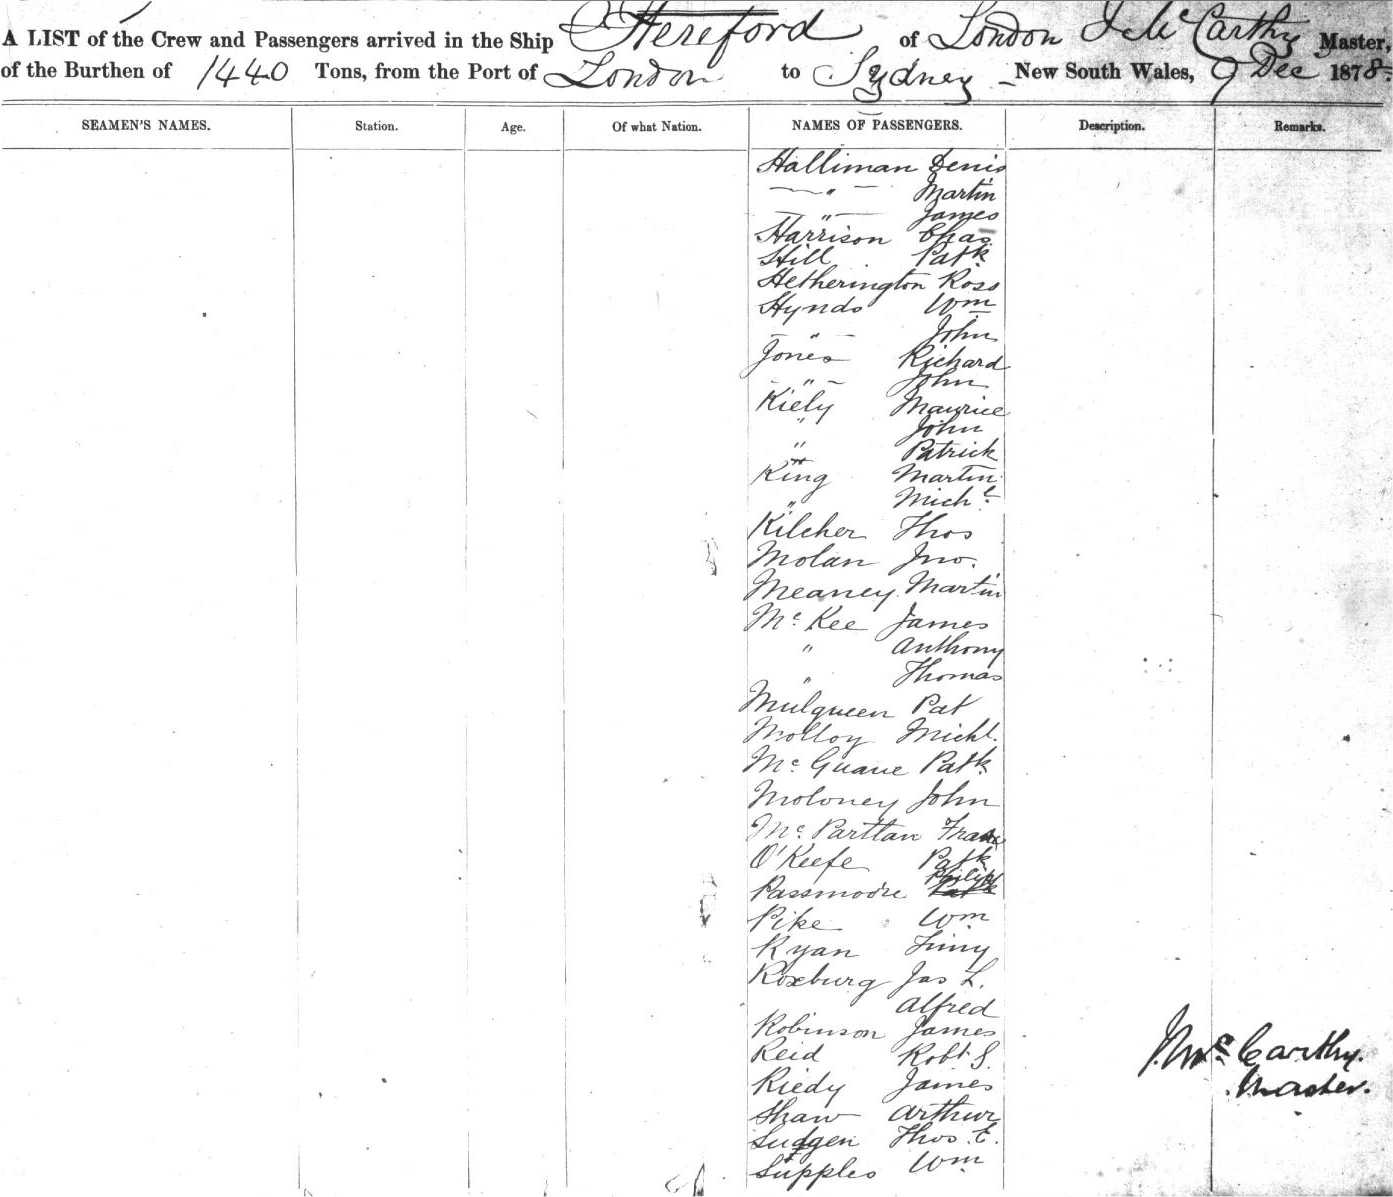 A LIST of the Crew and Passengers arrived in the Ship Hereford of London J McCarthy Master,
of the Burthen of 1440 Tons, from the Port of London to Sydney New South Wales, 9 Dec 1878.
SEAMEN'S NAMES. Station. Age. Of what Nation. NAMES OF PASSENGERS. Description. Remarks.
Halliman Denis
—"— Martin
—"— James
Harrison Chas.
Hill Patk
Hetherington Ross
Hynds Wm
—"— John
Jones Richard
—"— John
Kiely Maurice
" John
" Patrick
King Martin
" Michl
Kilcher Thos
Molan Jno.
Meaney Martin
McKee James
" Anthony
" Thomas
Mulqueen Pat
Molloy Michl.
Mc Guane Patk
Moloney John
Mc Partlan
O'Keefe Patk
Passmoore Philip
Pike Wm
Ryan Timy
Roxburg Jas L.
Alfred
Robinson James
Reid Robt S.
Riedy James
Shaw Arthur
Sudgen Thos. E.
Supples Wm
J. McCarthy.
Master.